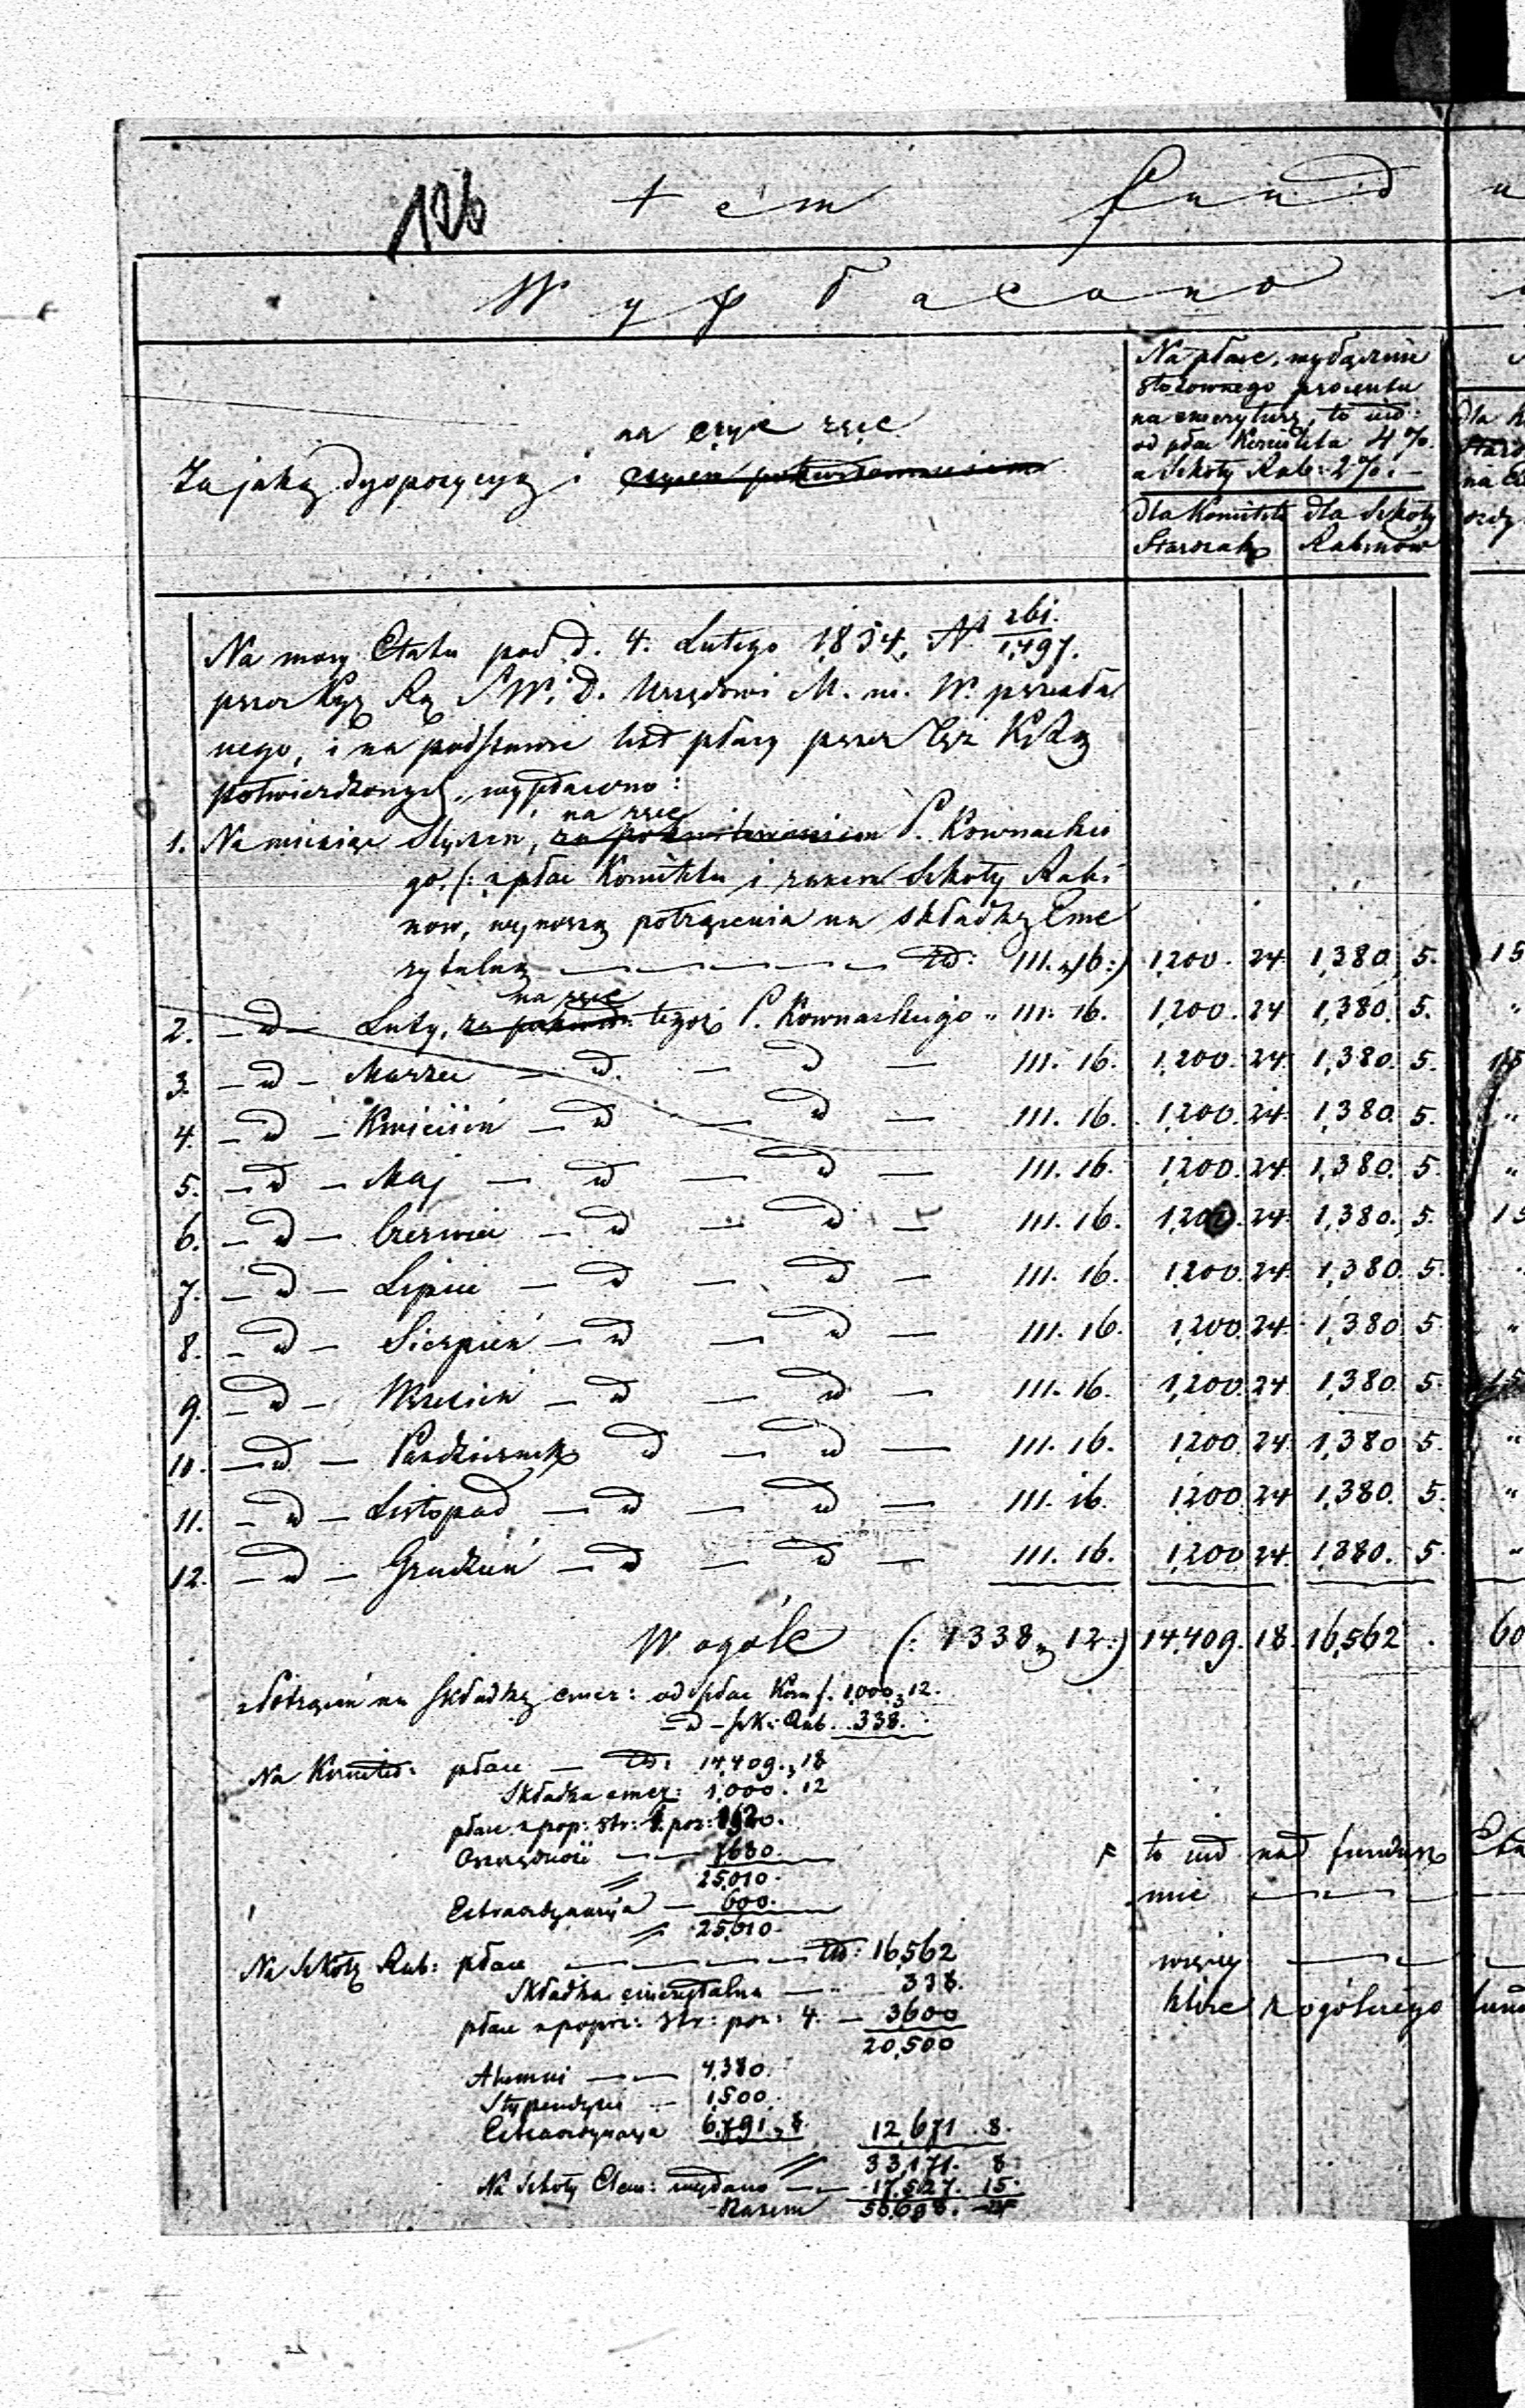 126
tem fund
Wypłacono
na czyje ręce
Za jaką dyspozycyą i czyiem pokwitowaniem
Na płace, wyłącznie
stosownego procentu
na emeryturę, to iest:
od płac Komitetu 4%.
a Szkoły Rab: 2%. —
dla Komitetu
Starozak
dla Szkoły
Rabinów
Na mocy Etatu pod d. 4. Lutego 1854, Nº 261./1,497.
przez Kę Rą S W. D. Urzędowi M. m. W. przesła
nego, i na podstawie list płacy przez Tęż K. Rą
potwierdzonych, wypłacono:
na ręce
1. Na miesiąc Styczeń, za pokwitowaniem P. Kownackie
go, (: z płac Komitetu i razem Szkoły Rabi
nów, wynoszą potrącenia na składkę Eme
rytalną — — — — — złł: 111. „ 16 :) 1,200. 24 1,380. 5. 15
na ręce
2. — d — Luty, za pokwit: tegoż P. Kownackiego „ 111. 16. 1,200. 24 1,380. 5. "
3. — d — Marzec — d — d — 111. 16. 1,200. 24. 1,380. 5.
4. — d — Kwiecień — d — d — 111. 16. 1,200. 24. 1,380. 5. "
5. — d — Maj — d — d — 111. 16. 1,200. 24. 1,380. 5. "
6. — d — Czerwiec — d — d — 111. 16. 1,200. 24. 1,380. 5. 15
7. — d — Lipiec — d — d — 111. 16. 1,200. 24. 1,380. 5.
8. — d — Sierpień — d — d — 111. 16. 1,200. 24. 1,380. 5. "
9. — d — Wrzesień — d — d — 111. 16. 1,200. 24. 1,380. 5. 15
10. — d — Październik d — d — 111. 16. 1,200. 24. 1,380. 5. "
11. — d — Listopad — d — d — 111. 16. 1,200. 24 1,380. 5. "
12. — d — Grudzień — d — d — 111. 16. 1,200 24. 1,380. 5. "
W ogóle (: 1338 „ 12 :) 14,409. 18. 16,562 . 60
Potrąceń na składkę emer: od płac Kom f. 1,000 „ 12.
— d — szk: Rab. 338.
Na Komitet: płace — złł: 14,409. „ 18
Składka emer: 1,000. 12
Oszczędność — — 1,680.
25,010.
Extraordynarya — 600.
25,610.
Na Szkołę Rab: płace — — — — złł: 16,562
Składka emerytalna — 338.
płace z poprz: str: poz: 4. — 3600
20,500
Alumni — — 4,380.
Stypendyści — 1,500.
Extraordynarya 6,791 „ 8. 12,671. 8.
33,171. 8
Na Szkoły Elem: wydano — — 17,527. 15.
Razem 50,698.
to iest nad fundusz
mie — — —
więcej — — —
które z ogólnego